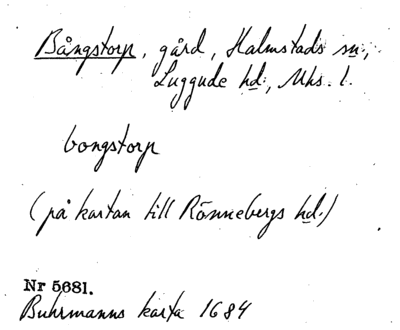 Bångstorp, gård, Halmstads sn.,
Luggude hd., Mhs. l.
bongstorp
(på kartan till Rönnebergs hd.)
Nr 5681.
Buhrmanns karta 1684